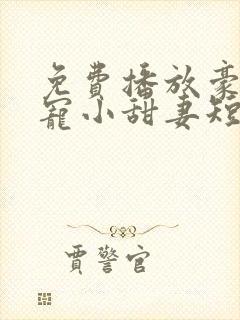 免費播放豪
寵小甜妻短
賈警官